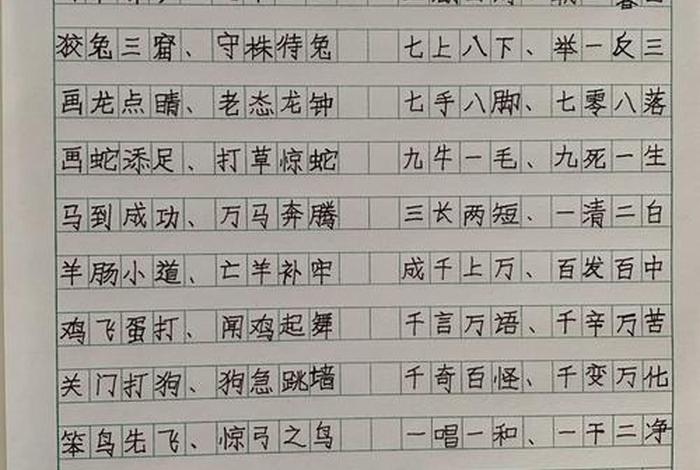 狡兔三窟、守株待兔 七上八下、举一反三
画龙点睛、老态龙钟 七手八脚、七零八落
画蛇添足、打草惊蛇 九牛一毛、九死一生
马到成功、万马奔腾 三长两短、一清二白
羊肠小道、亡羊补牢 成千上万、百发百中
鸡飞蛋打、闻鸡起舞 千言万语、千辛万苦
关门打狗、狗急跳墙 千奇百怪、千变万化
笨鸟先飞、惊弓之鸟 一唱一和、一干二净